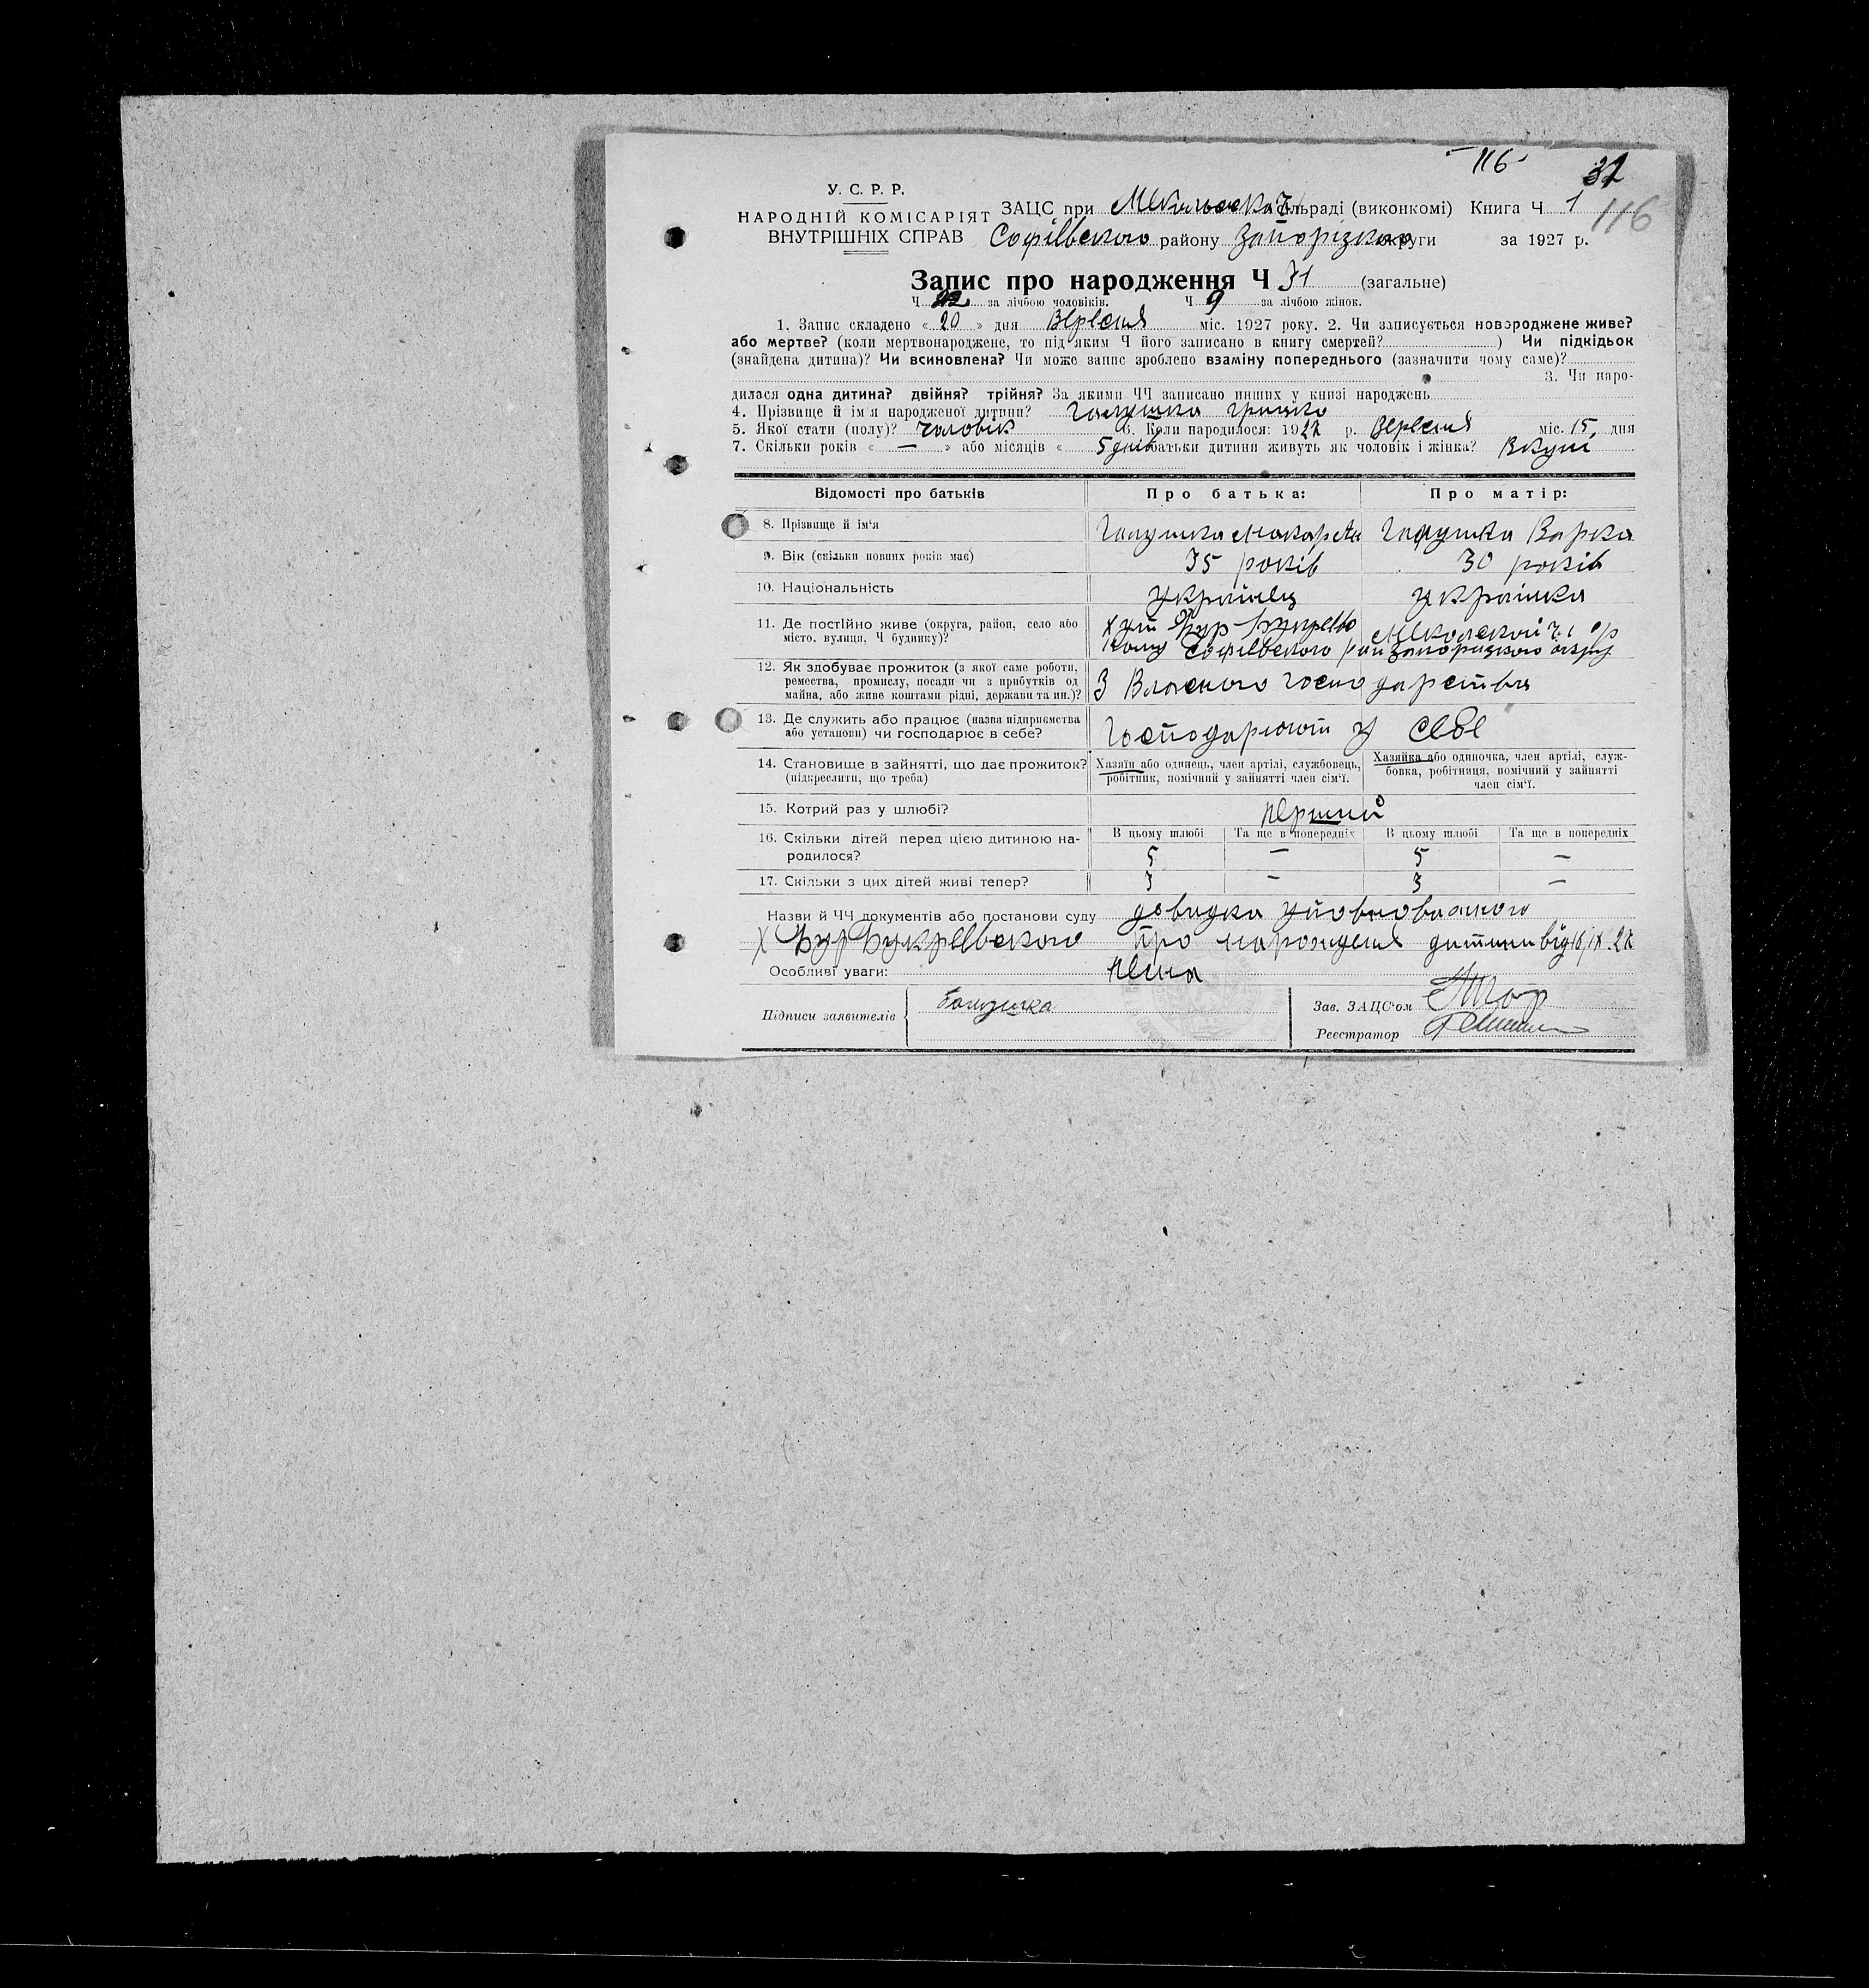 116
31
116
У. С. Р. Р.
НАРОДНІЙ КОМІСАРІЯТ
ВНУТРІШНІХ СПРАВ
ЗАЦС при сільраді (виконкомі) Книга Ч 1
Софієвского району Запорізкою округи за 1927 р.
Запис про народження Ч 31 (загальне)
Ч 22 за лічбою чоловіків. Ч 9 за лічбою жінок.
1. Запис складено « 20 » дня Вересня міс. 1927 року. 2. Чи записується новороджене живе?
або мертве? (коли мертвонароджене, то під яким Ч його записано в книгу смертей? ) Чи підкідьок
(знайдена дитина)? Чи всиновлена? Чи може запис зроблено взаміну попереднього (зазначити чому саме)?
3. Чи наро-
дилася одна дитина? двійня? трійня? За якими ЧЧ записано инших у книзі народжень
4. Прізвище й ім'я народженої дитини? Галушка Грицко
5. Якої стати (полу)? чоловік 6. Коли народилося: 1927 р. Вересня міс. 15 дня
7. Скільки років « — » або місяців « 5 днів батьки дитини живуть як чоловік і жінка? Вкупі
Відомості про батьків
Про батька:
Про матір:
8. Прізвище й ім'я
Галушка Макар
Галушка Варка
9. Вік (скільки повних років має)
35 років
30 років
10. Національність
Українец
Українка
11. Де постійно живе (округа, район, село або
місто, вулиця, Ч будинку)?
Хут
Софієвского рай Запорізкого округ
12. Як здобуває прожиток (з якої саме роботи,
ремества, промислу, посади чи з прибутків од
майна, або живе коштами рідні, держави та ин.)?
З Власного господарства
13. Де служить або працює (назва підприємства
або установи) чи господарює в себе?
Господарюють у себе
14. Становище в зайнятті, що дає прожиток?
(підкреслити, що треба)
Хазяїн або одинець, член артілі, службовець,
робітник, помічний у зайнятті член сім'ї.
Хазяйка або одиночка, член артілі, служ-
бовка, робітниця, помічний у зайнятті
член сім'ї.
15. Котрий раз у шлюбі?
перший
16. Скільки дітей перед цією дитиною на-
родилося?
В цьому шлюбі Та ще в попередніх В цьому шлюбі Та ще в попередніх
5 — 5 —
17. Скільки з цих дітей живі тепер?
3 — 3 —
Назви й ЧЧ документів або постанови суду довидка уповноважного
про народження дитини від 18/IX 27
Особливі уваги: Нема
Підписи заявителів
Галушка
Зав. ЗАЦС'ом
Реєстратор